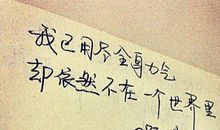 我已用尽全身力气
却依然不在一个世界里